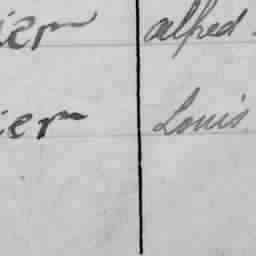 ier alfred
ier Louis